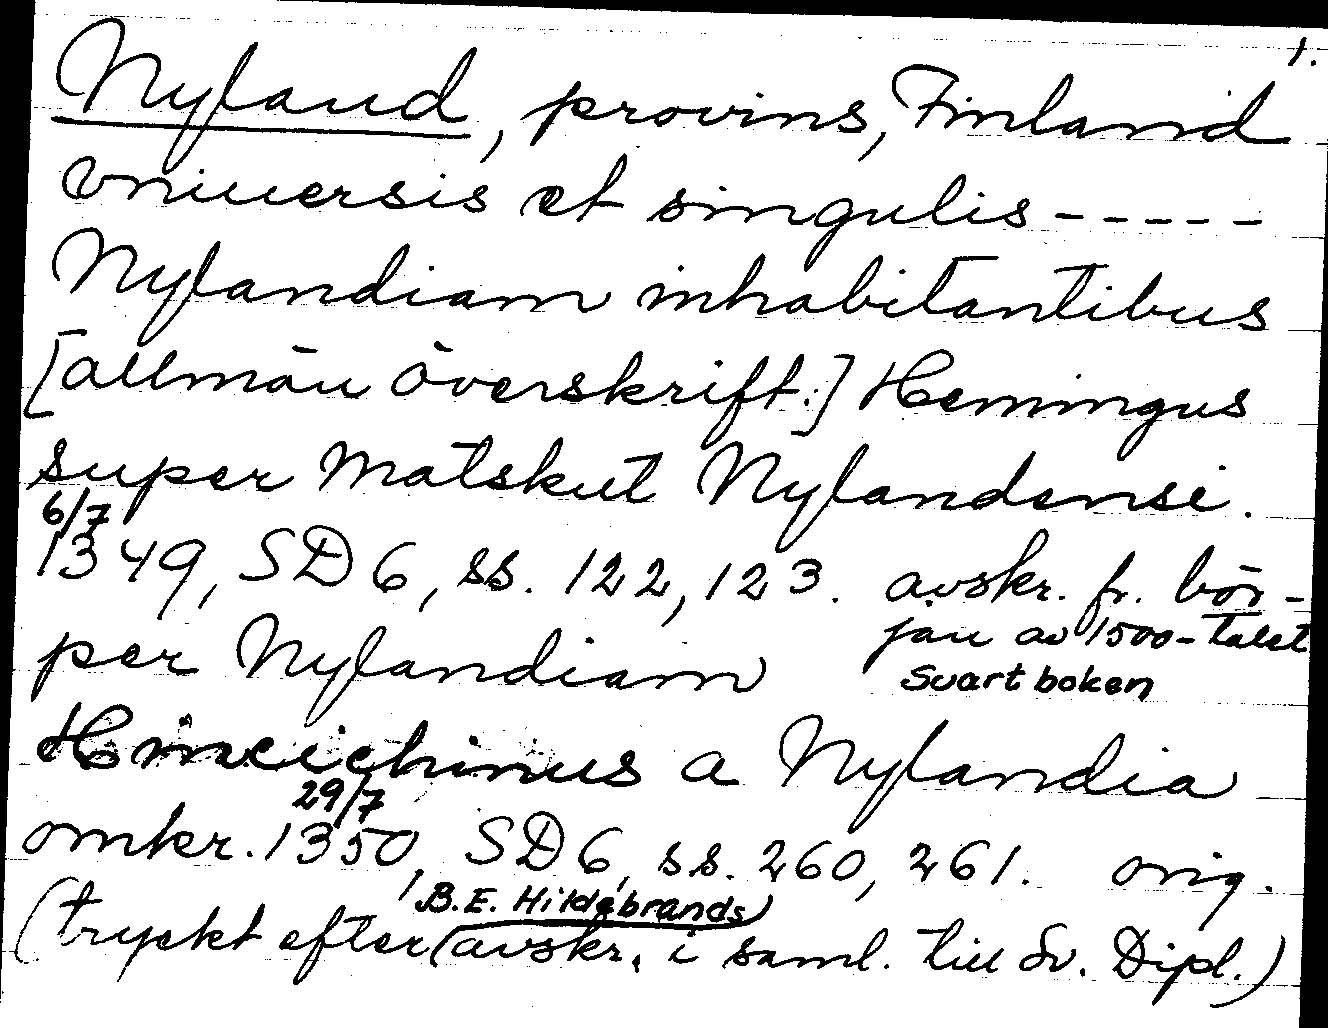 1.
Nyland, provins, Finland
vniuersis et singulis -----
Nylandiam inhabitantibus
[allmän överskrift:] Hemingus
super Matskut Nylandensi.
6/7
1349, SD 6, ss. 122, 123. avskr. fr. bör-
jan av 1500-talet
Svart boken
per Nylandiam
Hincichinus a Nylandia
29/7
omkr. 1350, SD 6, ss. 260, 261. orig.
B.E. Hildebrands
(tryckt efter avskr. i saml. till Sv. Dipl.)